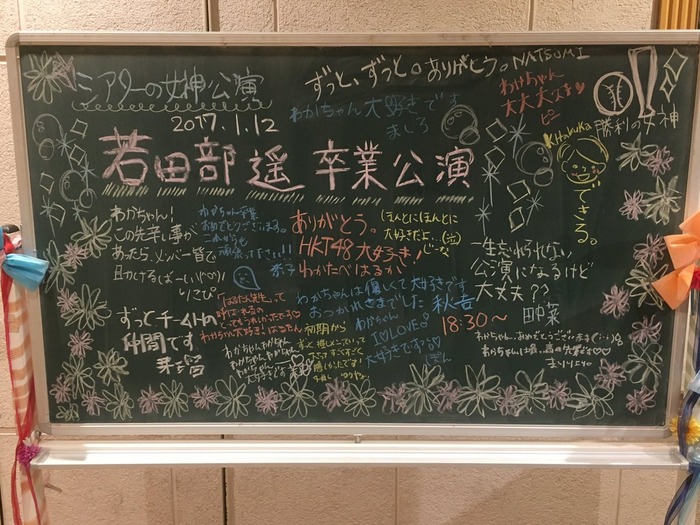 シアターの女神公演
2017.1.12
ずっと、ずっと。ありがとう。NATSUMI
わかちゃん大好きです
ましろ
わかちゃん
大大大スキ
勝利の女神
若田部遥 卒業公演
できる。
わかちゃん!
この先辛い事が
あったら、メンバー皆で
りこぴー
わかちゃん卒業
おめでとうございます。
これからも
ありがとう。
HKT48大好き!
わかたべはるか
ほんとにほんとに
大好きだよ…(泣)
じーな
一生忘れられない
公演になるけど
大丈夫??
田中菜
ずっとチームHの
仲間です
「はるたん先生」って
わかちゃん大好き!はるたん
わかちゃんは優しくて大好きです
おつかれさまでした 秋吉
18:30〜
初期から
わかちゃん
I♡LOVE♡
大好きです
わかちゃんわかちゃん
わかちゃんわかちゃん
わかちゃん
大好きです
わかちゃん、おめでとうございます
わかちゃんは最高の先輩です♡♡
まりりぃ